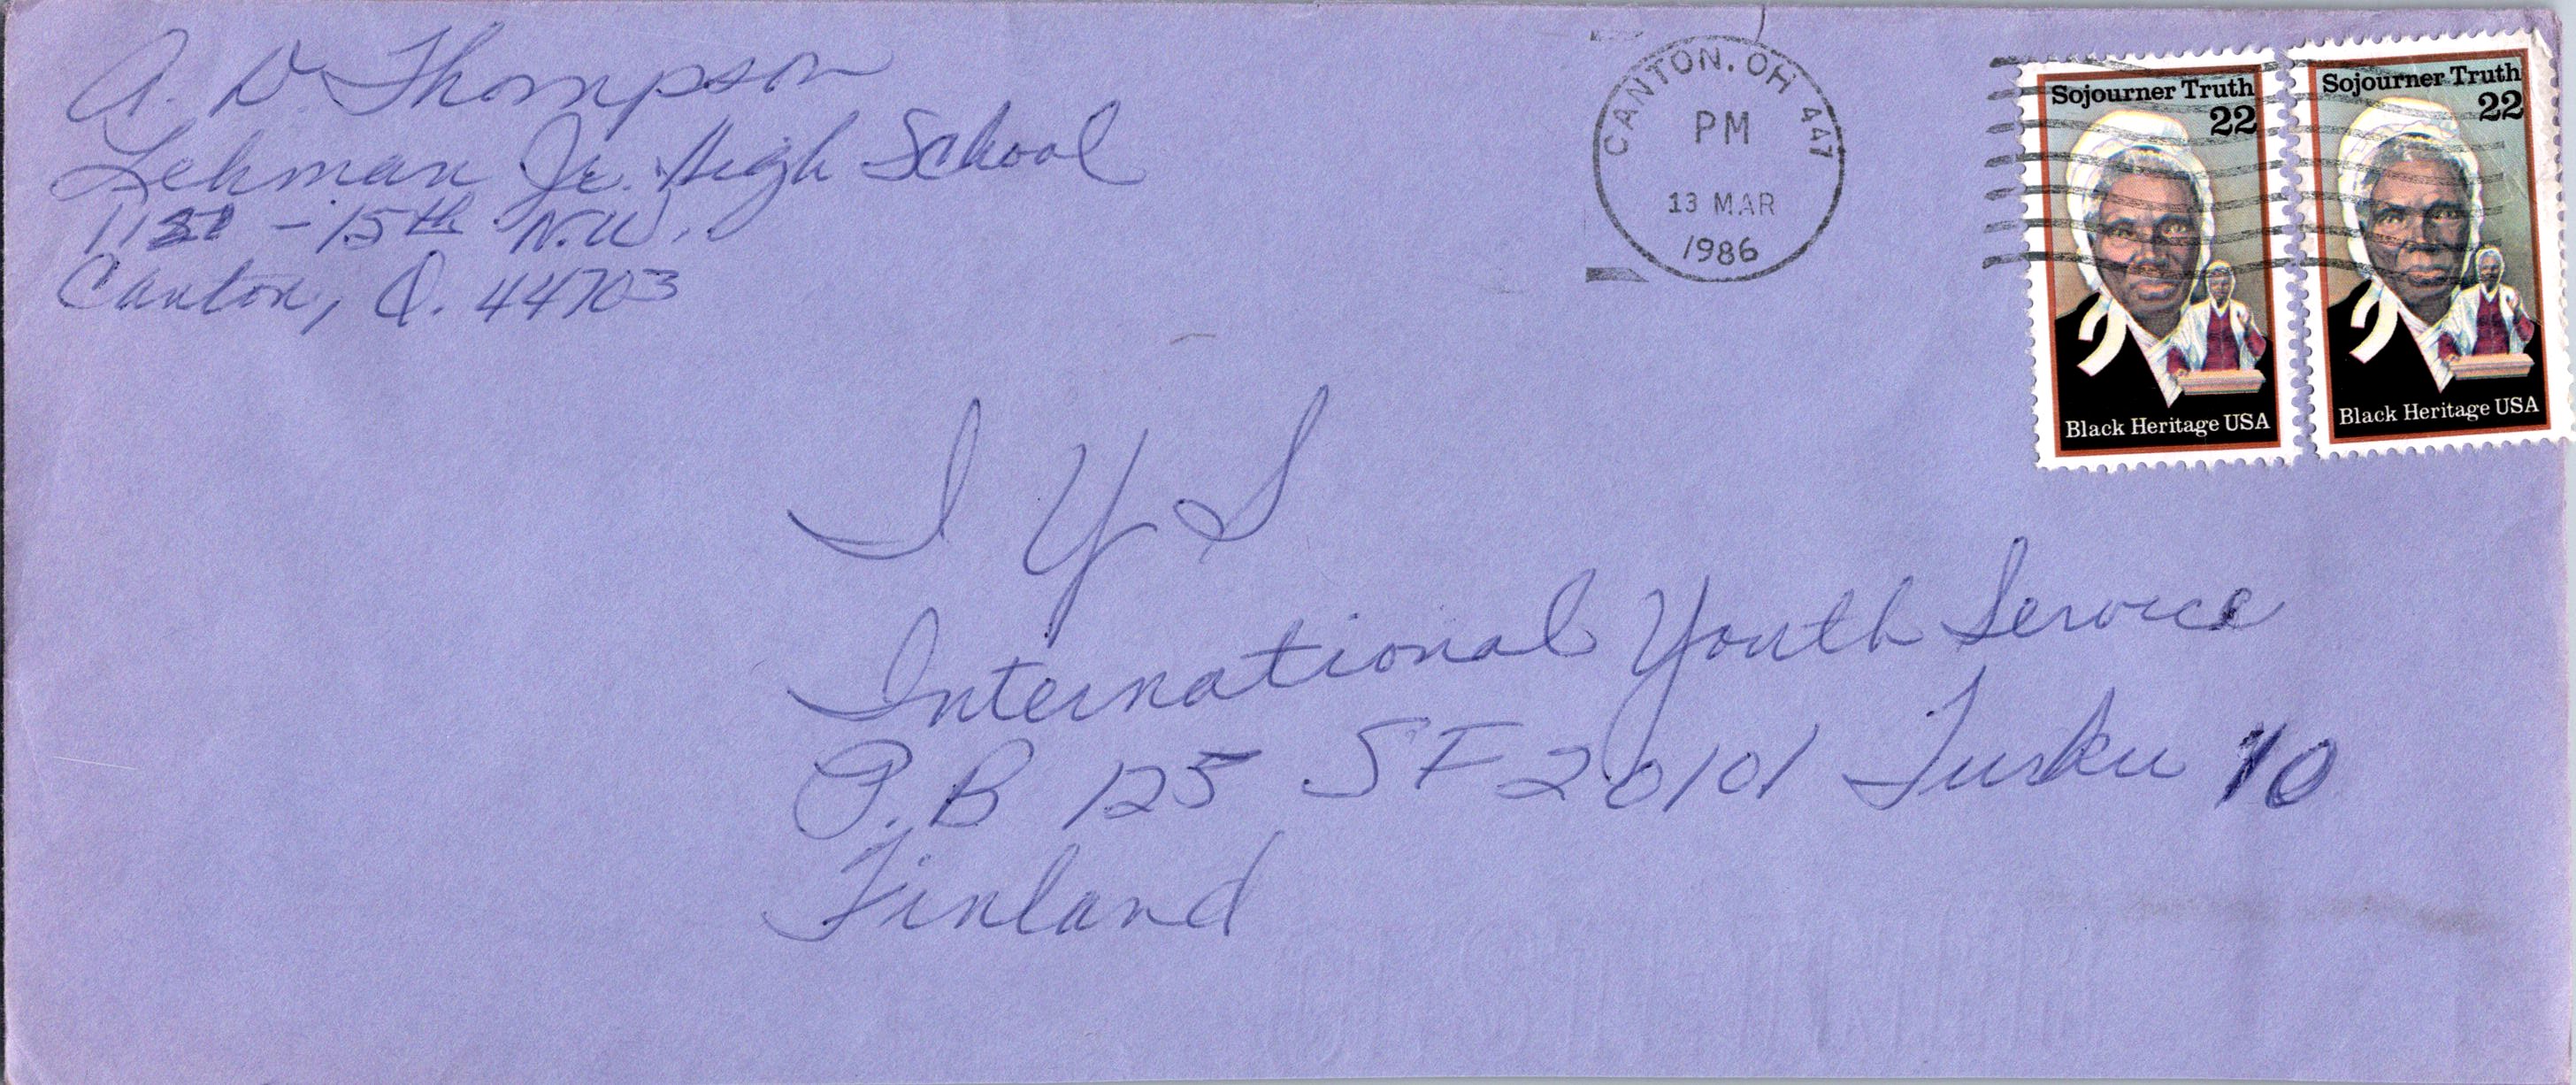 A. D Thompson
Lehman Jr. High School
- 15th N.W.
Canton, O. 44703
CANTON, OH 447
PM
13 MAR
1986
Sojourner Truth
22
Black Heritage USA
Sojourner Truth
22
Black Heritage USA
I Y S
International Youth Service
P.B 125 SF 20101 Turku 10
Finland